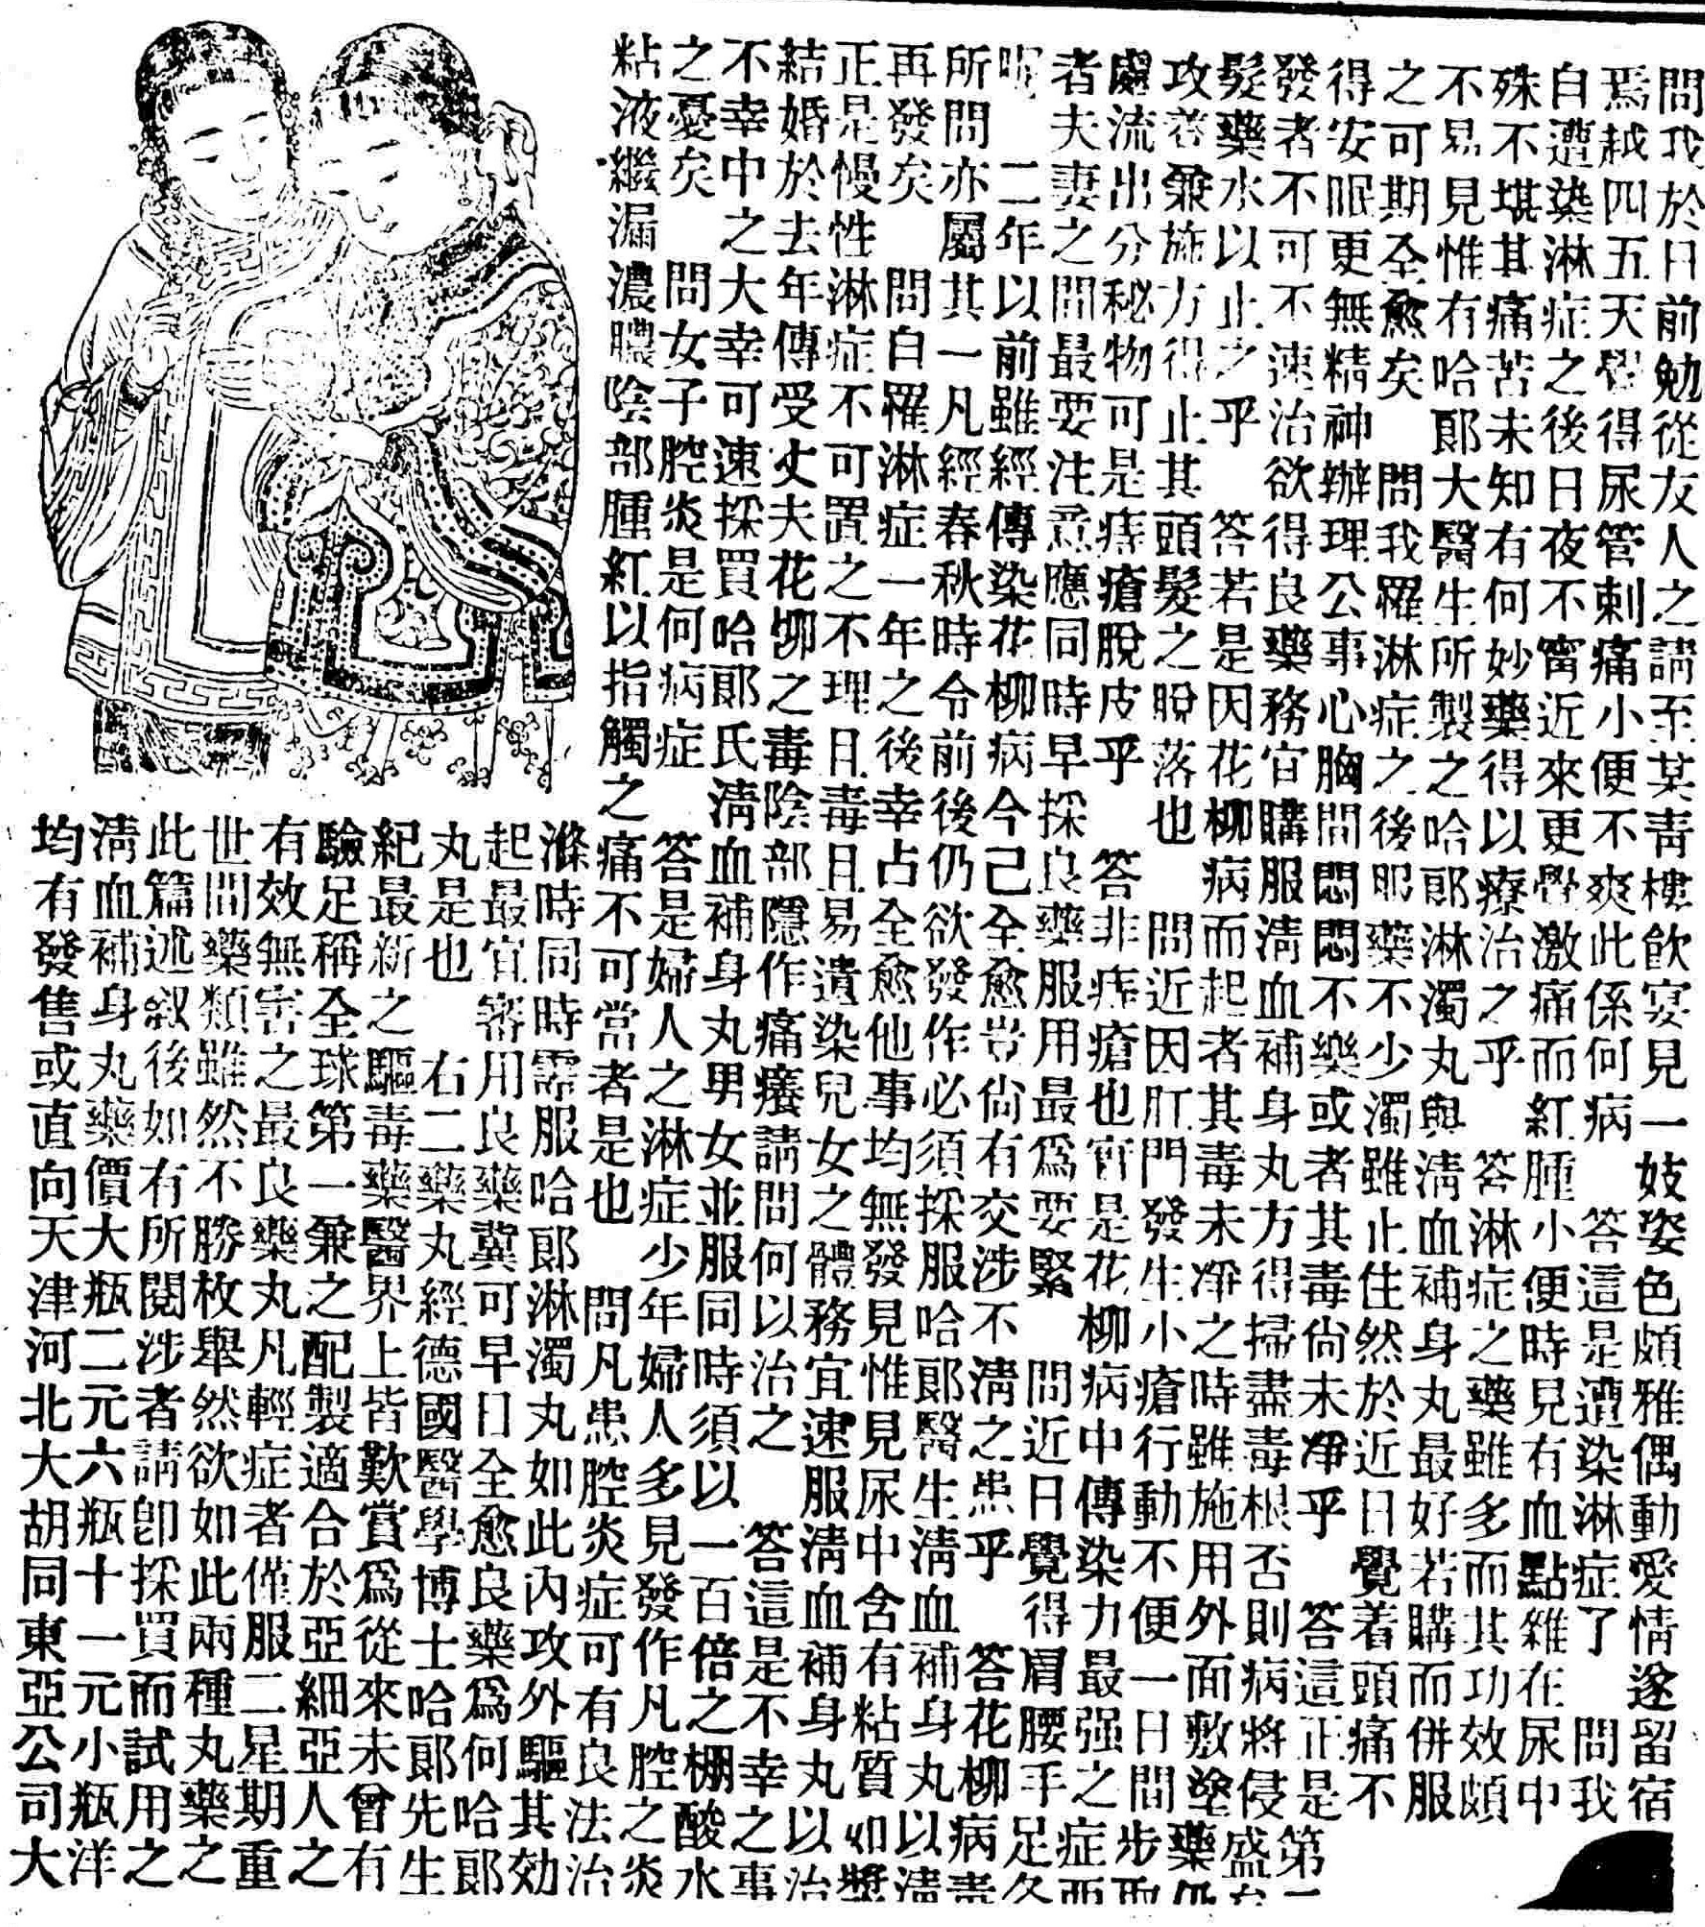 問我於日前勉從友人之請至某青樓飲宴見一妓姿色頗雅偶動愛情遂留宿
焉越四五天覺得尿管刺痛小便不爽此係何病 答這是遭染淋症了 問我
自遭染淋症之後日夜不甯近來更覺激痛而紅腫小便時見有血點雜在尿中
殊不堪其痛苦未知有何妙藥得以療治之乎 答淋症之藥雖多而其功效頗
不易見惟有哈郎大醫生所製之哈郎淋濁丸與清血補身丸最好若購而併服
之可期全愈矣 問我罹淋症之後服藥不少濁雖止住然於近日覺着頭痛不
得安眠更無精神辦理公事心胸間悶悶不樂或者其毒尚未淨乎 答這正是第
發者不可不速治欲得良藥務宜購服清血補身丸方得掃盡毒根否則病將侵盛
髮藥水以止之乎 答若是因花柳病而起者其毒未淨之時雖施用外面敷塗藥
攻養兼施方得止其頭髮之脫落也 問近因肛門發生小瘡行動不便一日間步
處流出分秘物可是痔瘡脫皮乎 答非痔瘡也實是花柳病中傳染力最强之症
者夫妻之間最要注意應同時早採良藥服用最爲要緊 問近日覺得肩腰手足
呢 二年以前雖經傳染花柳病今己全愈豈尚有交涉不清之患乎 答花柳病毒
所問亦屬其一凡經春秋時令前後仍欲發作必須採服哈郎醫生清血補身丸以清
再發矣 問白罹淋症一年之後幸占全愈他事均無發見惟見尿中含有粘質如漿
正是慢性淋症不可置之不理且毒且易遺染兒女之體務宜速服清血補身丸以治
結婚於去年傳受丈夫花柳之毒陰部隱作痛癢請問何以治之 答這是不幸之事
不幸中之大幸可速採買哈郎氏清血補身丸男女並服同時須以一百倍之棚酸水
之憂矣 問女子腔炎是何病症 答是婦人之淋症少年婦人多見發作凡腔之炎
粘液繼漏濃膿陰部腫紅以指觸之痛不可當者是也 問凡患腔炎症可有良法治
滌時同時需服哈郎淋濁丸如此內攻外驅其効
起最宜審用良藥冀可早日全愈良藥爲何哈郎
丸是也 右二藥丸經德國醫學博士哈郎先生
紀最新之驅毒藥醫界上皆歎賞爲從來未曾有
驗足稱全球第一兼之配製適合於亞細亞人之
有效無害之最良藥丸凡輕症者僅服二星期重
世間藥類雖然不勝枚舉然欲如此兩種丸藥之
此篇述叙後如有所閱涉者請卽採買而試用之
清血補身丸藥價大瓶二元六瓶十一元小瓶洋
均有發售或直向天津河北大胡同東亞公司大